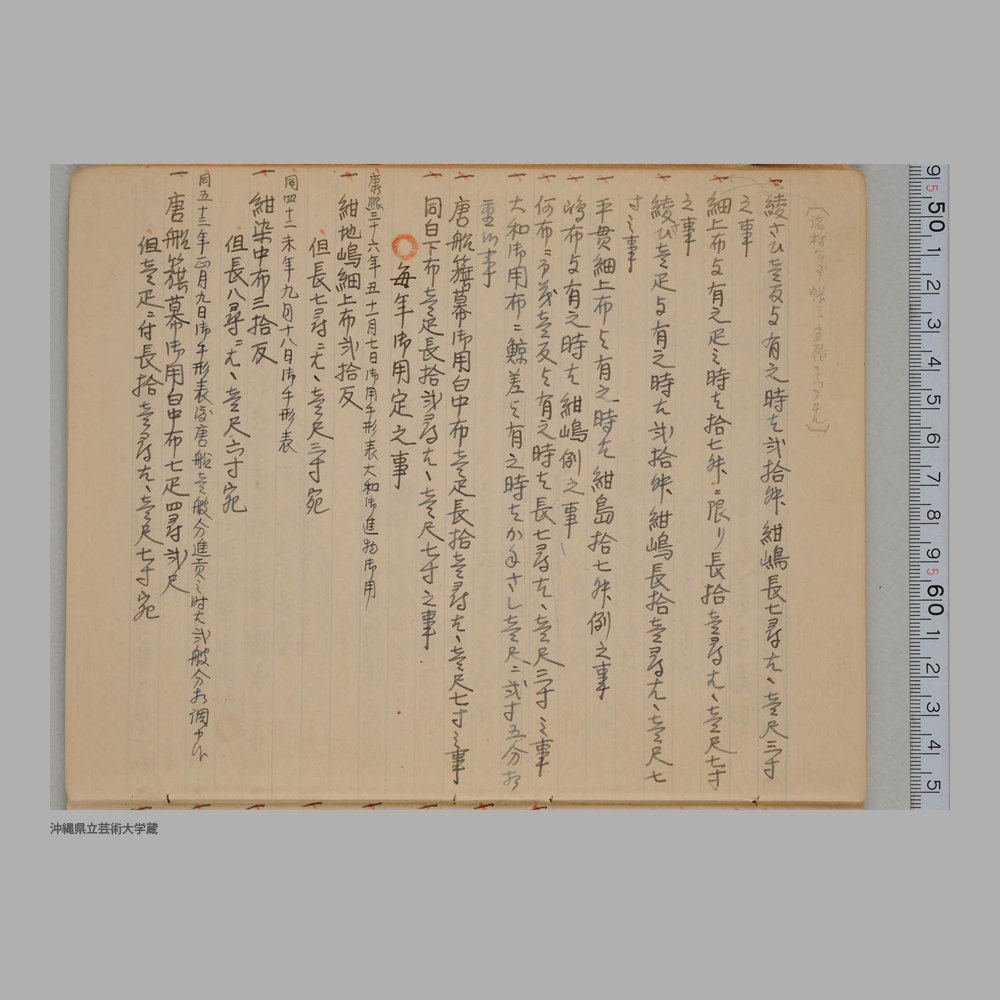 一 綾さひ壱反ゟ有之時者弐拾舛紺嶋長七尋尤、壱尺三寸
之事
一 細上布ゟ有之疋之時者拾七舛ニ限り長拾壱尋尤、壱尺七寸
之事
一 綾さひ壱疋ゟ有之時者弐拾舛紺嶋長拾壱尋尤、壱尺七
寸之事
一 平貫細上布ゟ有之時者紺島拾七舛例之事
一 嶋布ゟ有之時者紺嶋例之事
一 何布ニ而茂壱反ゟ有之時者長七尋尤、壱尺三寸之事
一 大和御用布ニ鯨差ゟ有之時者かねさし壱尺ニ弐寸五分お
重候事
一 唐船籏幕御用白中布壱疋長拾壱尋尤、壱尺七寸之事
一 同白下布壱疋長拾弐尋尤、壱尺七寸之事
○ 毎年御用定之事
康熙三十六年丑十一月七日御用手形表大和御進物御用
一 紺地嶋細上布弐拾反
但長七尋ニ尤、壱尺三寸宛
同四十二未年九月十八日御手形表
一 紺染中布三拾反
但長八尋ニ尤、壱尺六寸宛
同五十三年正月九日御手形表ニ唐船壱艘分進貢之時者弐艘分相調申候
一 唐船籏幕御用白中布七疋四尋弐尺
但壱疋ニ付長拾壱尋尤、壱尺七寸宛
9 5 50 1 2 3 4 5 6 7 8 9 5 60 1 2 3 4 5
沖縄県立芸術大学蔵